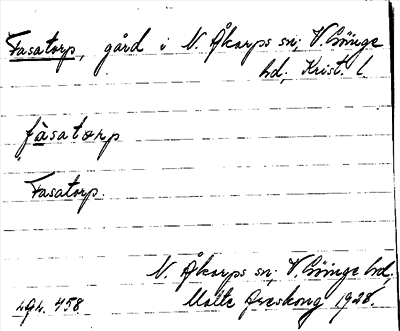 Fasatorp, gård i N. Åkarps sn, V. Göinge
hd, Krist. l.
fàsatorp
Fasatorp.
N. Åkarps sn, V. Göinge hd,
Malte 1928.
458